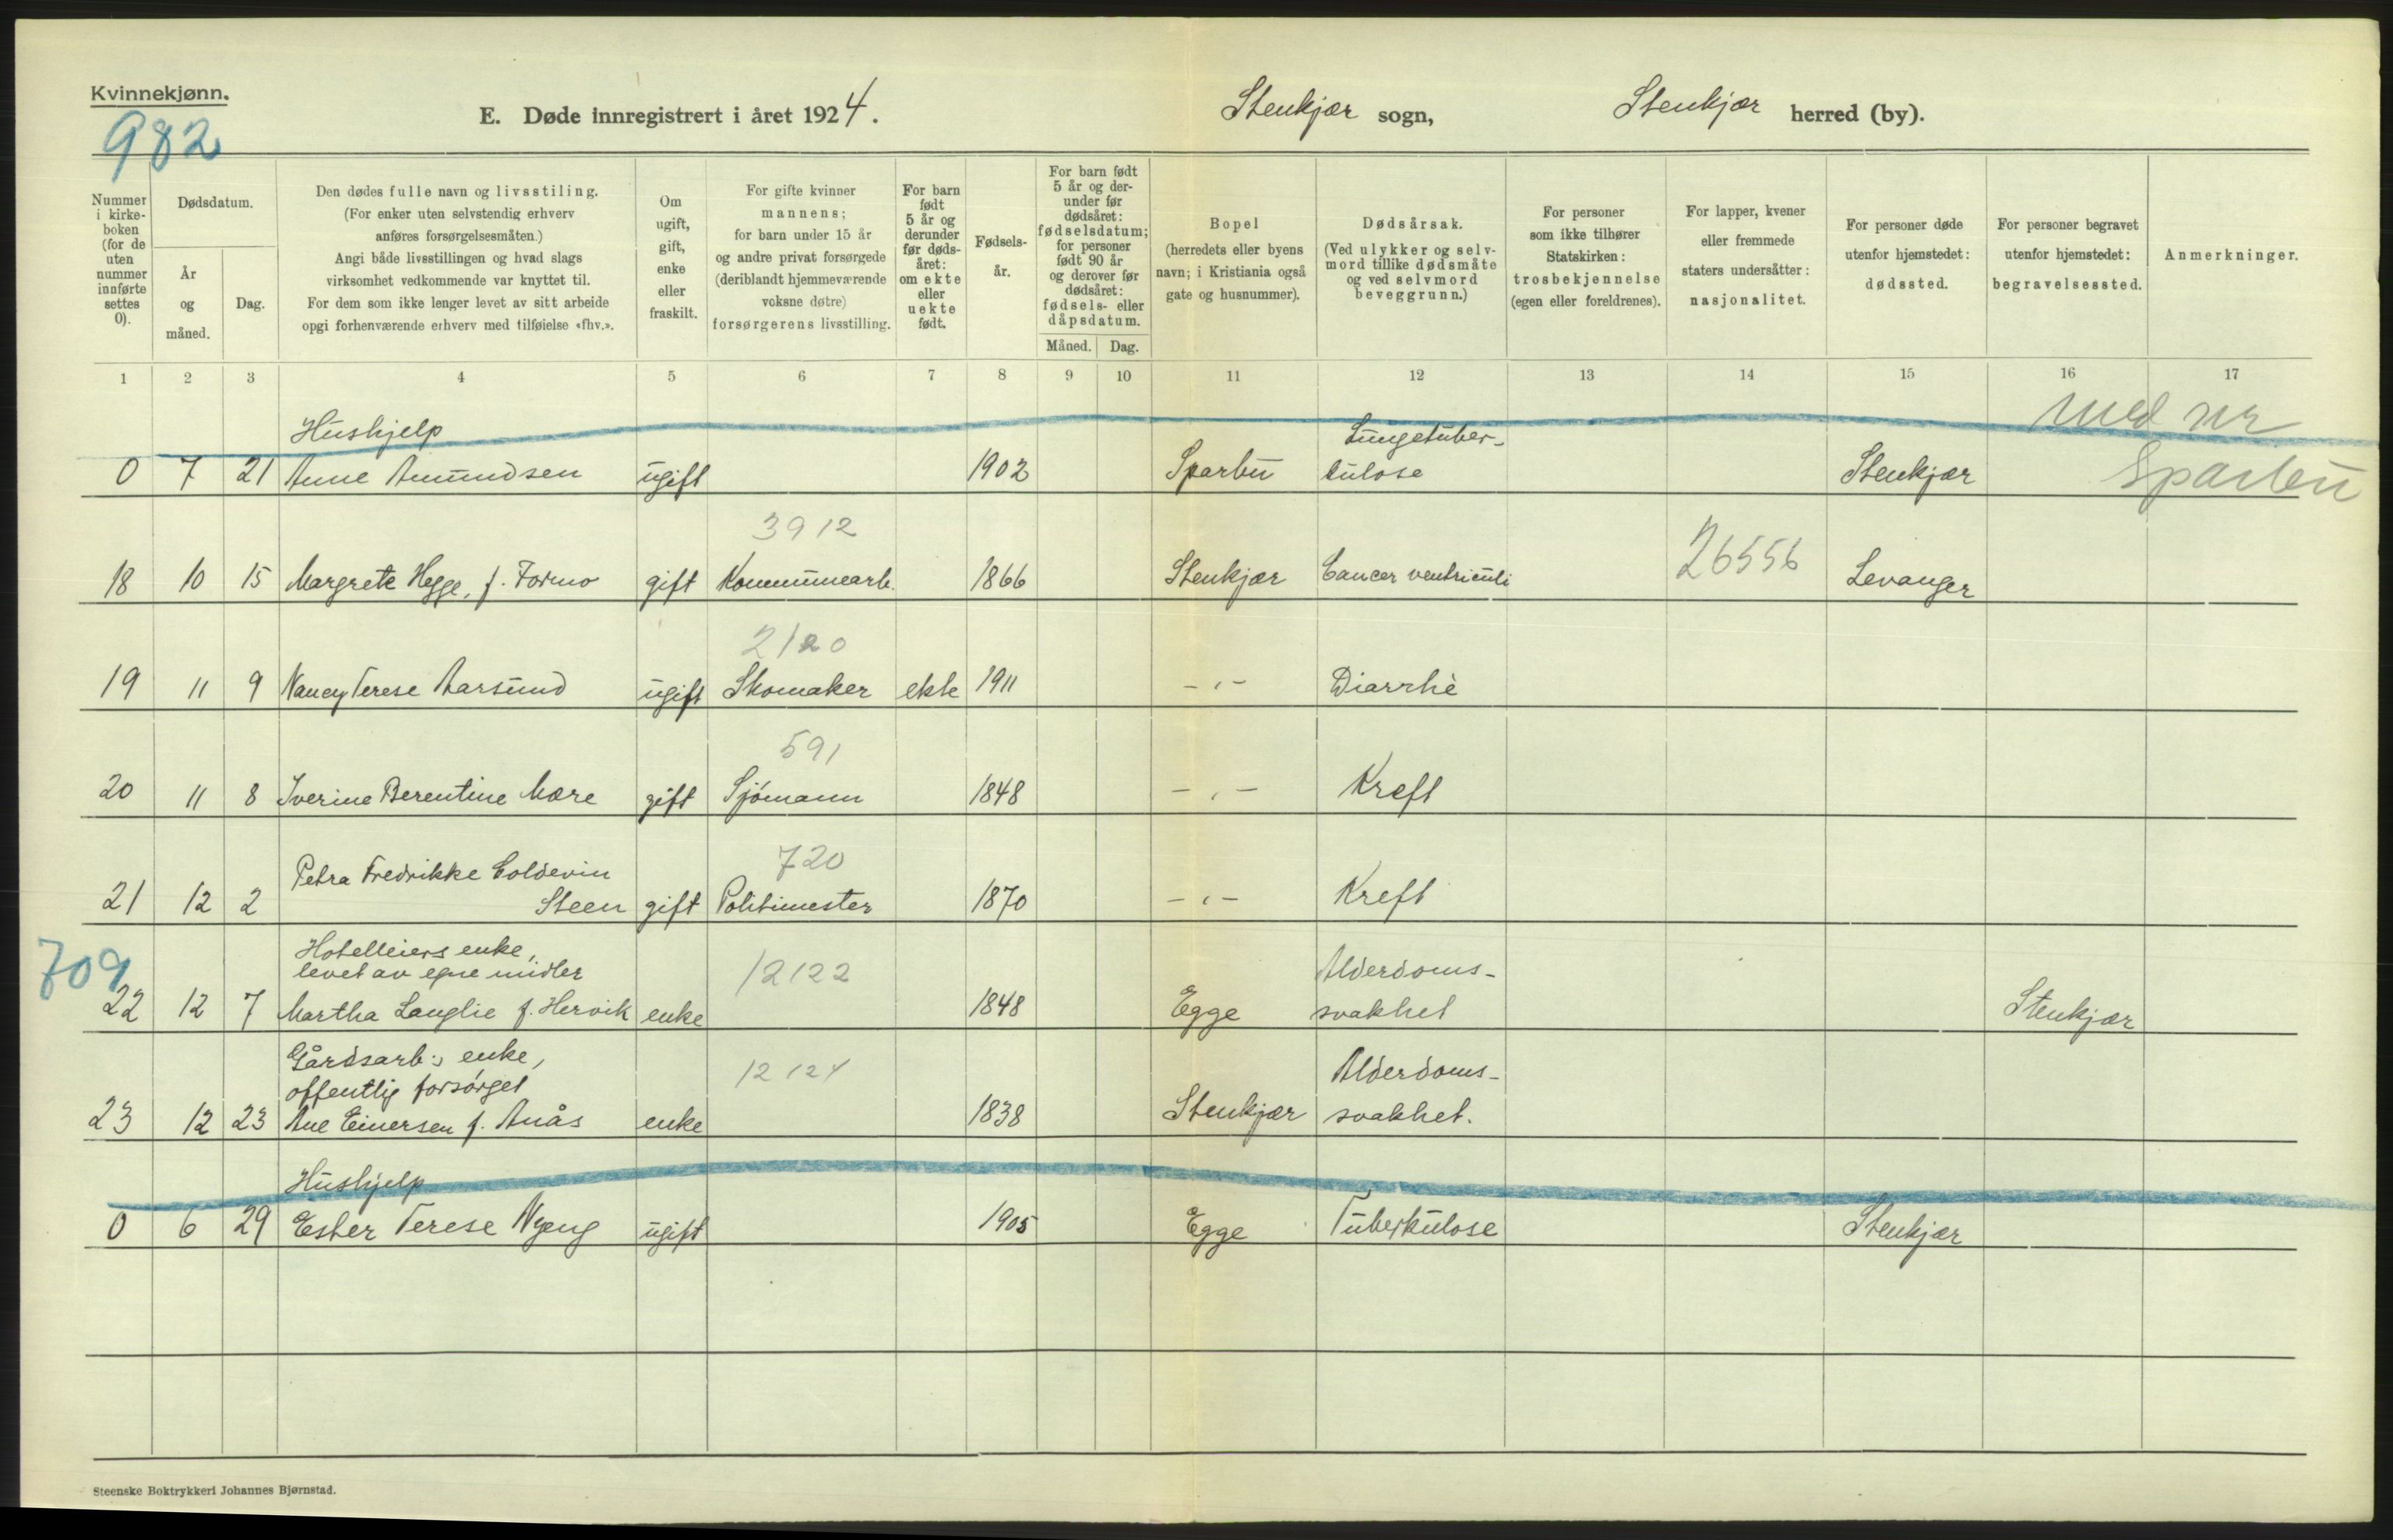 Kvinnekjønn.
982
E. Døde innregistrert i året 1924.
Stenkjær sogn,
Stenkjær herred (by).
Nummer i kirke-boken (for de uten nummer innførte settes 0).
Dødsdatum.
År og måned.
Dag.
Den dødes fulle navn og livsstiling.
(For enker uten selvstendig erhverv
anføres forsørgelsesmåten.)
Angi både livsstillingen og hvad slags
virksomhet vedkommende var knyttet til.
For dem som ikke lenger levet av sitt arbeide
opgi forhenværende erhverv med tilføielse «fhv.».
Om
ugift,
gift,
enke
eller
fraskilt.
For gifte kvinner
mannens;
for barn under 15 år
og andre privat forsørgede
(deriblandt hjemmeværende
voksne døtre)
forsørgerens livsstilling.
For barn
født
5 år og
derunder
før døds-
året:
om ekte
eller
uekte
født.
Fødsels-
år.
For barn født
5 år og der-
under før
dødsåret:
fødselsdatum;
for personer
født 90 år
og derover før
dødsåret:
fødsels- eller
dåpsdatum.
Måned. Dag.
Bopel
(herredets eller byens
navn; i Kristiania også
gate og husnummer).
Dødsårsak.
(Ved ulykker og selv-
mord tillike dødsmåte
og ved selvmord
beveggrunn.)
For personer
som ikke tilhører
Statskirken:
trosbekjennelse
(egen eller foreldrenes).
For lapper, kvener
eller fremmede
staters undersåtter:
nasjonalitet.
For personer døde
utenfor hjemstedet:
dødssted.
For personer begravet
utenfor hjemstedet:
begravelsessted.
Anmerkninger.
1 2 3 4 5 6 7 8 9 10 11 12 13 14 15 16 17
Hushjelp Lungetuber- med nr
0 7 21 Anne Amundsen ugift 1902 Sparbu kulose Stenkjær Sparbu
3912 26556
18 10 15 Margrete Hegge, f. Formo gift Kommunearb. 1866 Stenkjær Cancer ventriculi Levanger
2120
19 11 9 Nancy Terese Aarsund ugift Skomaker ekte 1911 -"- Diarrhè
591
20 11 8 Iverine Berentine Mære gift Sjømann 1848 -"- Kreft
Petra Fredrikke Coldevin 720
21 12 2 Steen gift Politimester 1870 -"- Kreft
709
Hotelleiers enke,
levet av egne midler 12122 Alderdoms-
22 12 7 Martha Langlie f. Hervik enke 1848 Egge svakhet Stenkjær
Gårdsarb:s enke,
offentlig forsørget 12124 Alderdoms-
23 12 23 Ane Einersen f. Anås enke 1838 Stenkjær svakhet.
Hushjelp
0 6 29 Ester Terese Nyeng ugift 1905 Egge Tuberkulose Stenkjær
Steenske Boktrykkeri Johannes Bjørnstad.